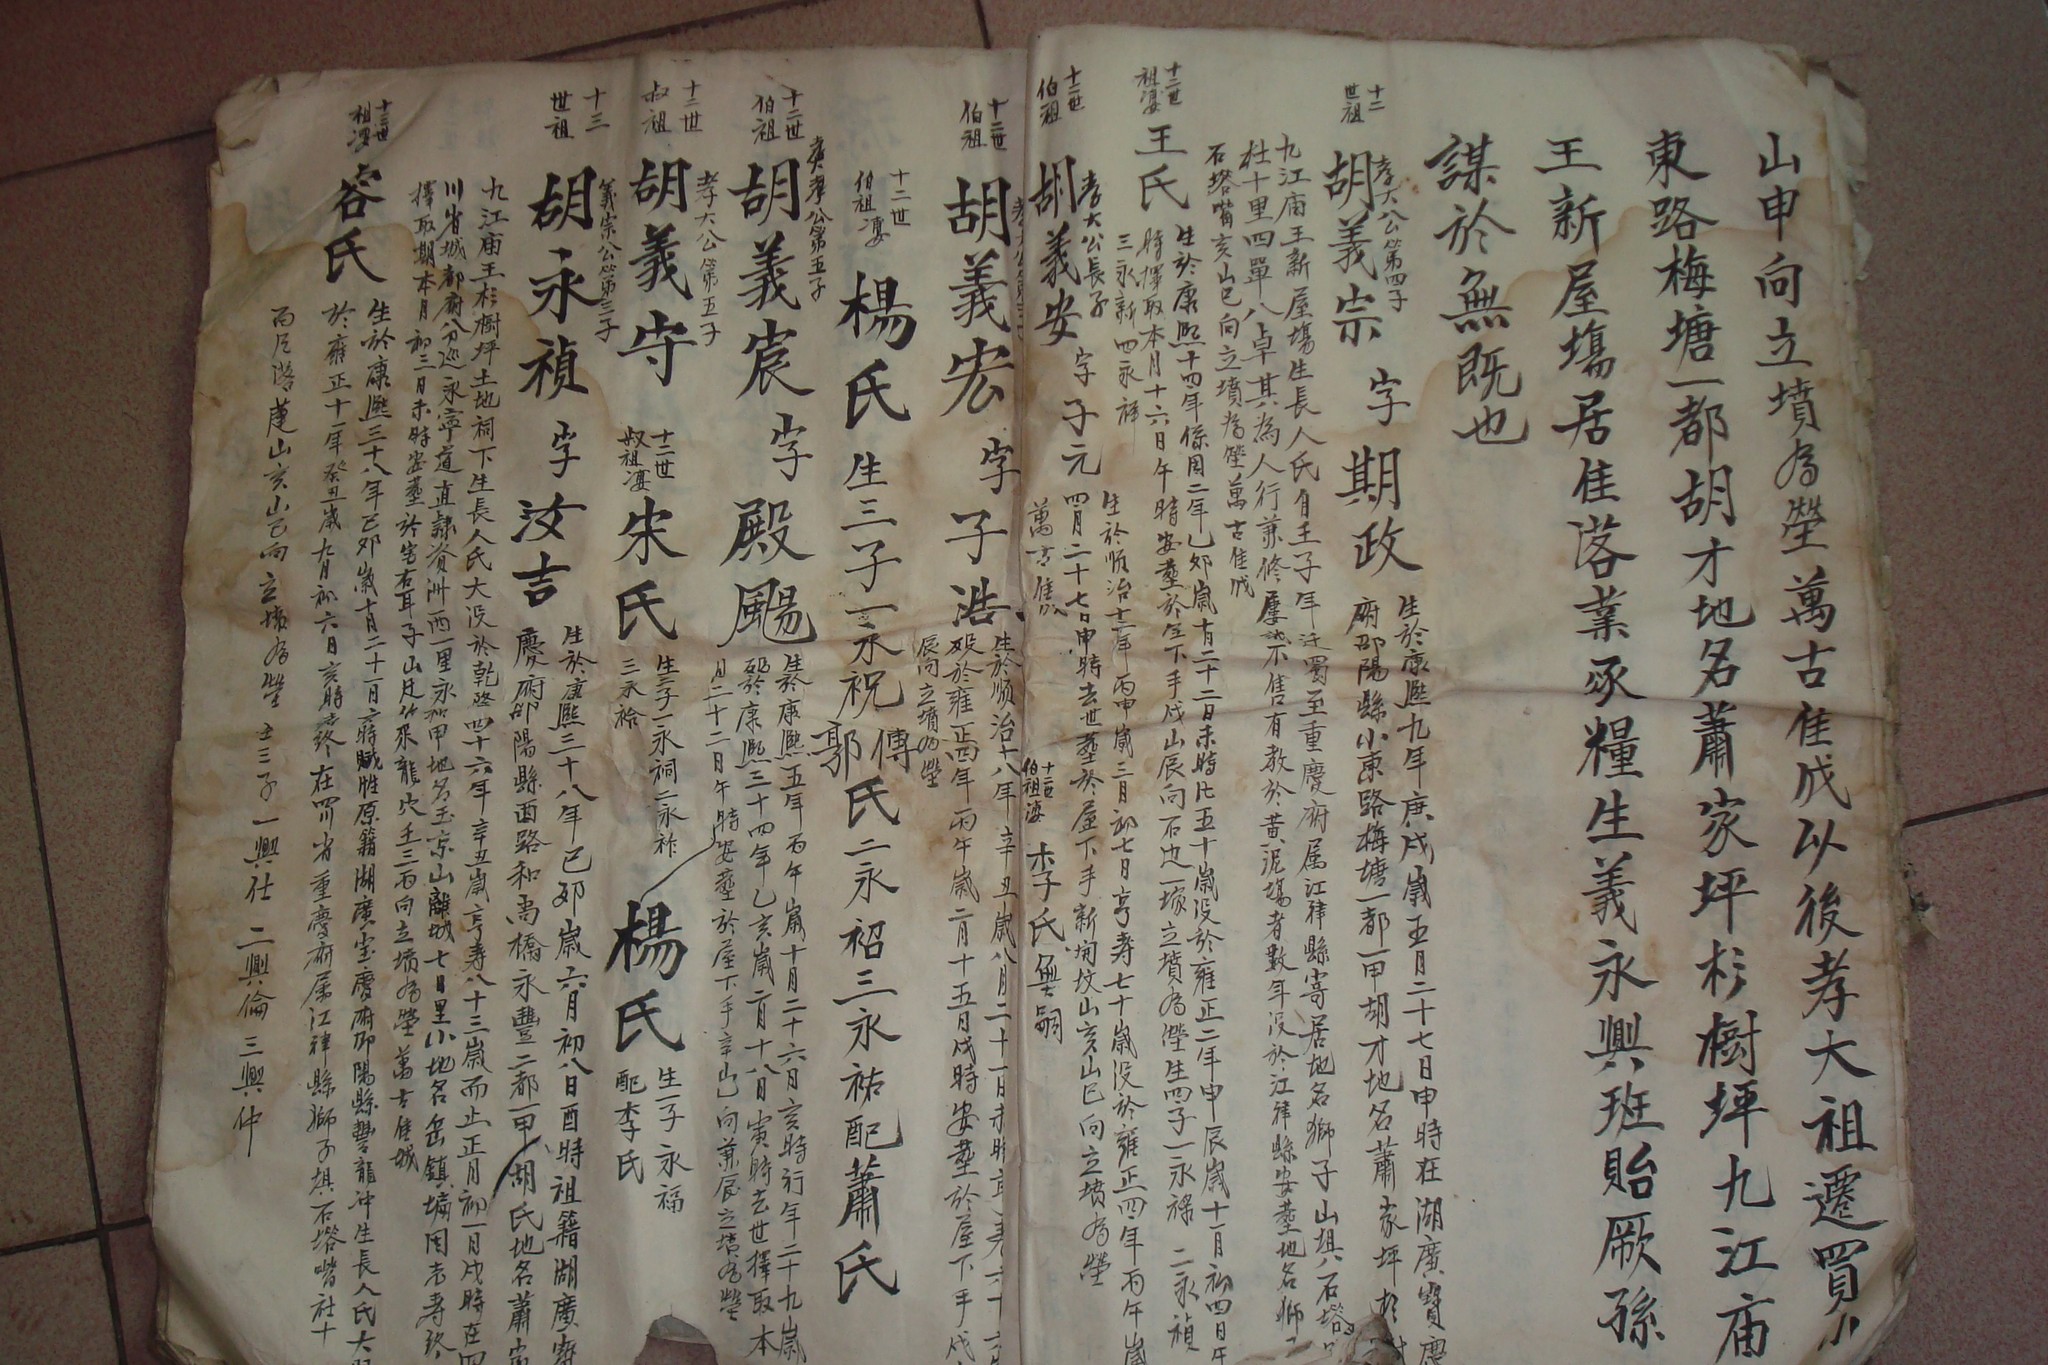 山申向立墳為塋萬古佳城以後孝大祖遷買小
東路梅塘一都胡才地名蕭家坪杉樹坪九江庙
王新屋塲居住落業承糧生義永興班貽厥孫
謀於無既也
十二世祖
孝大公第四子
胡義宗字期政
生於康熙九年庚戌歲五月二十七日申時在湖廣寶慶
府邵陽縣小東路梅塘一都一甲胡才地名蕭家坪杉樹
九江庙王新屋塲生長人氏自王子年迁蜀至重慶府属江津縣寄居地名獅子山棋八石塔
社十里四單八卓其為人行兼修屢試不售有教於黄泥塲者數年没於江津縣安塟地名獅子
石塔嘴亥山巳向立墳為塋萬古佳城
十二世祖婆
王氏
生於康熙十四年係因二年乙夘歲十月二十二日未時比五十歲没於雍正二年甲辰歲十一月初四日午
時擇取本月十六日午時安塟於屋下手戌山辰向石边一塚立墳為塋生四子一永禄 二永禎
三永新 四永祥
十二世伯祖
孝大公長子
胡義安 字子元
生於順治十三年丙申歲三月初七日享壽七十歲没於雍正四年丙午歲
四月二十七日申時去世塟於屋下手新開坟山亥山巳向立墳為塋
萬古佳城
十二世伯祖婆 李氏 無嗣
十二世伯祖
胡義宏 字子浩
生於順治十八年辛丑歲八月二十一日未時享壽六十六
殁於雍正四年丙午歲二月十五戌時安塟於屋下手戌
辰向立墳為塋
十二世伯祖婆
楊氏生三子一永祝傅郭氏二永祒三永祐配蕭氏
十二世伯祖
孝公第五子
胡義宸字殿颺
生於康熙五年丙午歲十月二十六日亥時行年二十九歲
殁於康熙三十四年乙亥歲二月十八日寅時去世擇取本
月二十二日午時安塟於屋下手辛山乙向兼辰立墳為塋
十二世叔祖
孝大公第五子
胡義守
十二世叔祖婆
宋氏
生三子一永祠二永祚
三永袷
楊氏
生一子永福
配李氏
十三世祖
義宗公第三子
胡永禎字汝吉
生於康熙三十八年己夘歲六月初八日酉時祖籍湖廣寶
慶府邵陽縣西路和尚橋永豐二都一甲胡氏地名蕭家
九江庙王杉樹坪土地祠下生長人氏大没於乾隆四十六年辛丑歲享壽八十三歲而止正月初一日戌時在四
川省城都府分巡永寧道直隸資洲西一里永和甲地名玉京山離城七日里小地名岳鎮壩因老壽終
擇取期本月初三日未時安塟於宅右耳子山辰龍穴壬三丙向立墳為塋萬古佳城
十三世祖婆
容氏
生於康熙三十八年己夘歲十月二十一日亥時原籍湖廣宝慶府邵陽縣龍冲生長人氏大
於雍正十一年癸丑歲九月初六日亥時終在四川省重慶府属江津縣獅子棋石塔嘴社十
亥山巳向立墳為塋 生三子一興仕 二興倫 三興仲